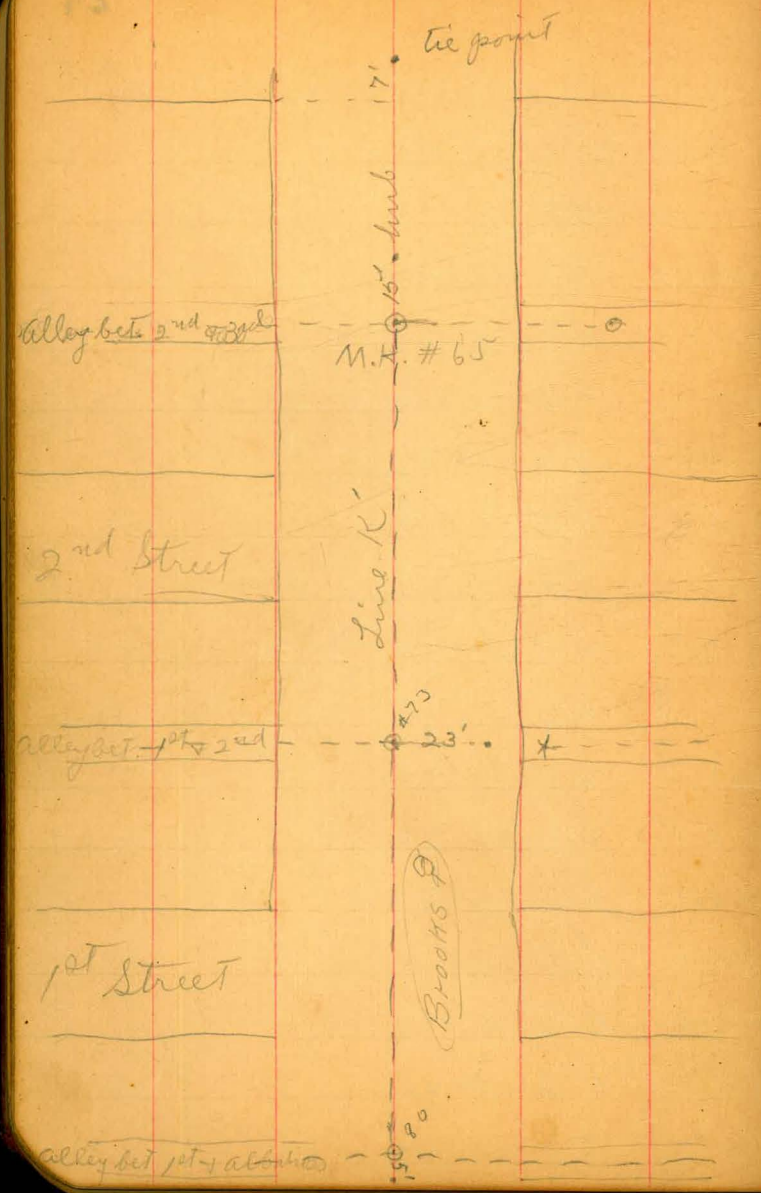 tie point
7'
15' hub
alley bet. 2nd & 3rd
M.H. # 65
Line K'
2nd Street
#73
alley bet 1st & 2nd
23'
Brooks
1st Street
80
alley bet 1st &